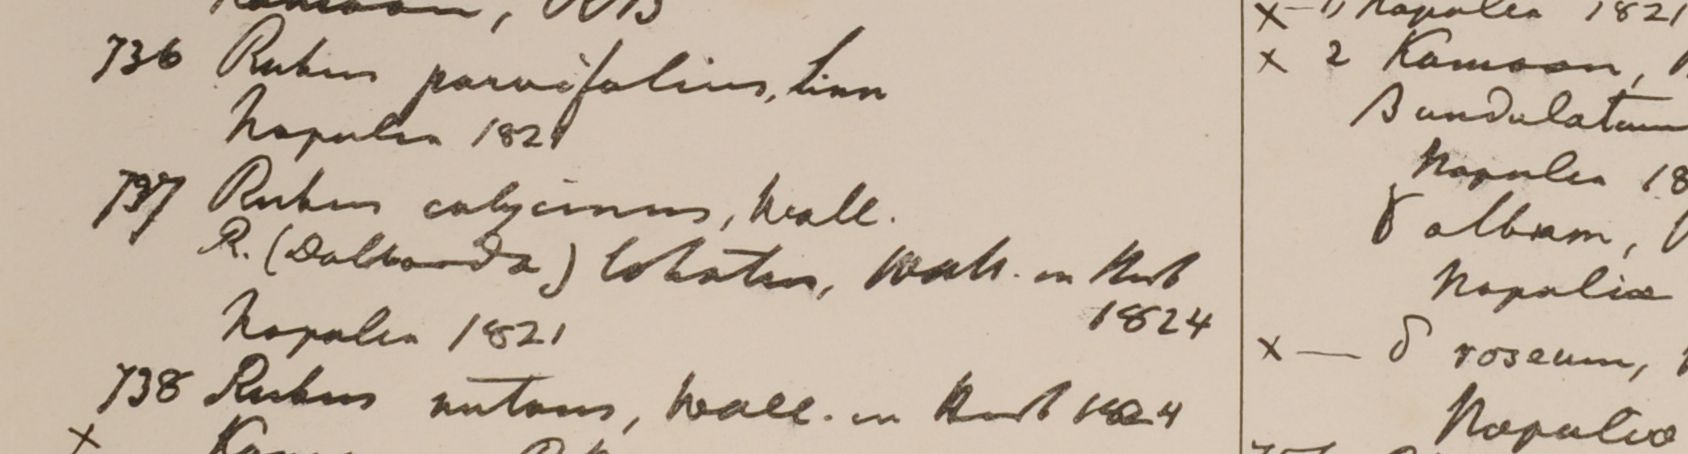 Kamaon, RB
736 Rubus parvifolius, Linn
Napalia 1821
737 Rubus calycinus, Wall.
R. (Dalibarda) lobatus, Wall. in Herb
1824
Napalia 1821
738 Rubus nutans, Wall. in Herb 1824
x Kamaon
x — 1, Napalia 1821
x 2 Kamaon,
β undulatum
Napalia 18
γ album,
Napalia
x — δ roseum,
Napalia